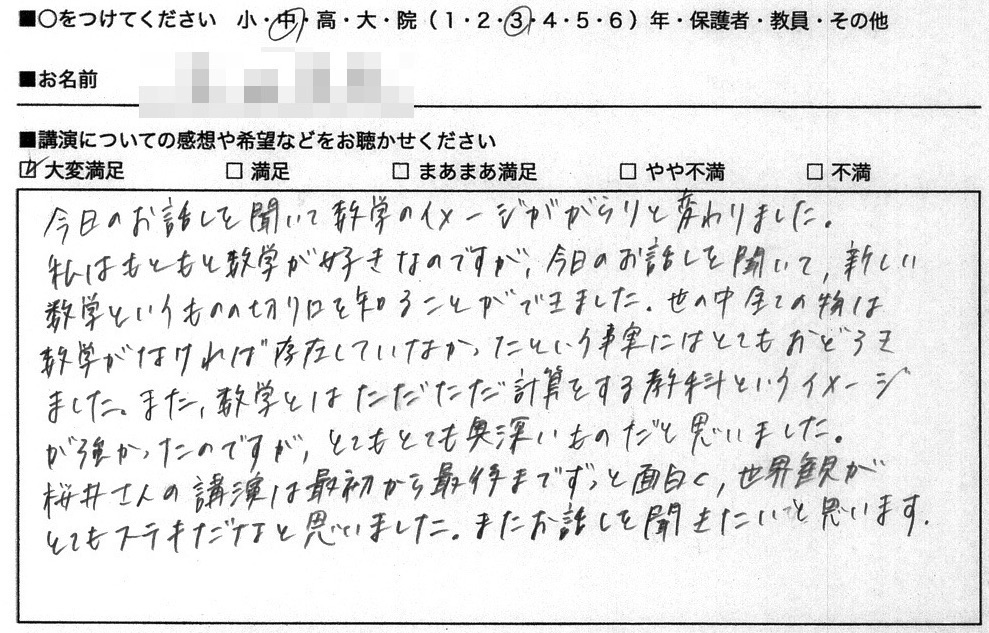 ■○をつけてください 小・中・高・大・院（1・2・3・4・5・6）年・保護者・教員・その他
■お名前
■講演についての感想や希望などをお聴かせください
☑ 大変満足 □ 満足 □ まあまあ満足 □ やや不満 □ 不満
今日のお話しを聞いて数学のイメージががらりと変わりました。
私はもともと数学が好きなのですが、今日のお話しを聞いて、新しい
数学というものの切り口を知ることができました。世の中全ての物は
数学がなければ存在していなかったという事実にはとてもおどろき
ました。また、数学とはただただ計算をする教科というイメージ
が強かったのですが、とてもとても奥深いものだと思いました。
桜井さんの講演は最初から最後までずっと面白く、世界観が
とてもステキだなと思いました。またお話しを聞きたいと思います。